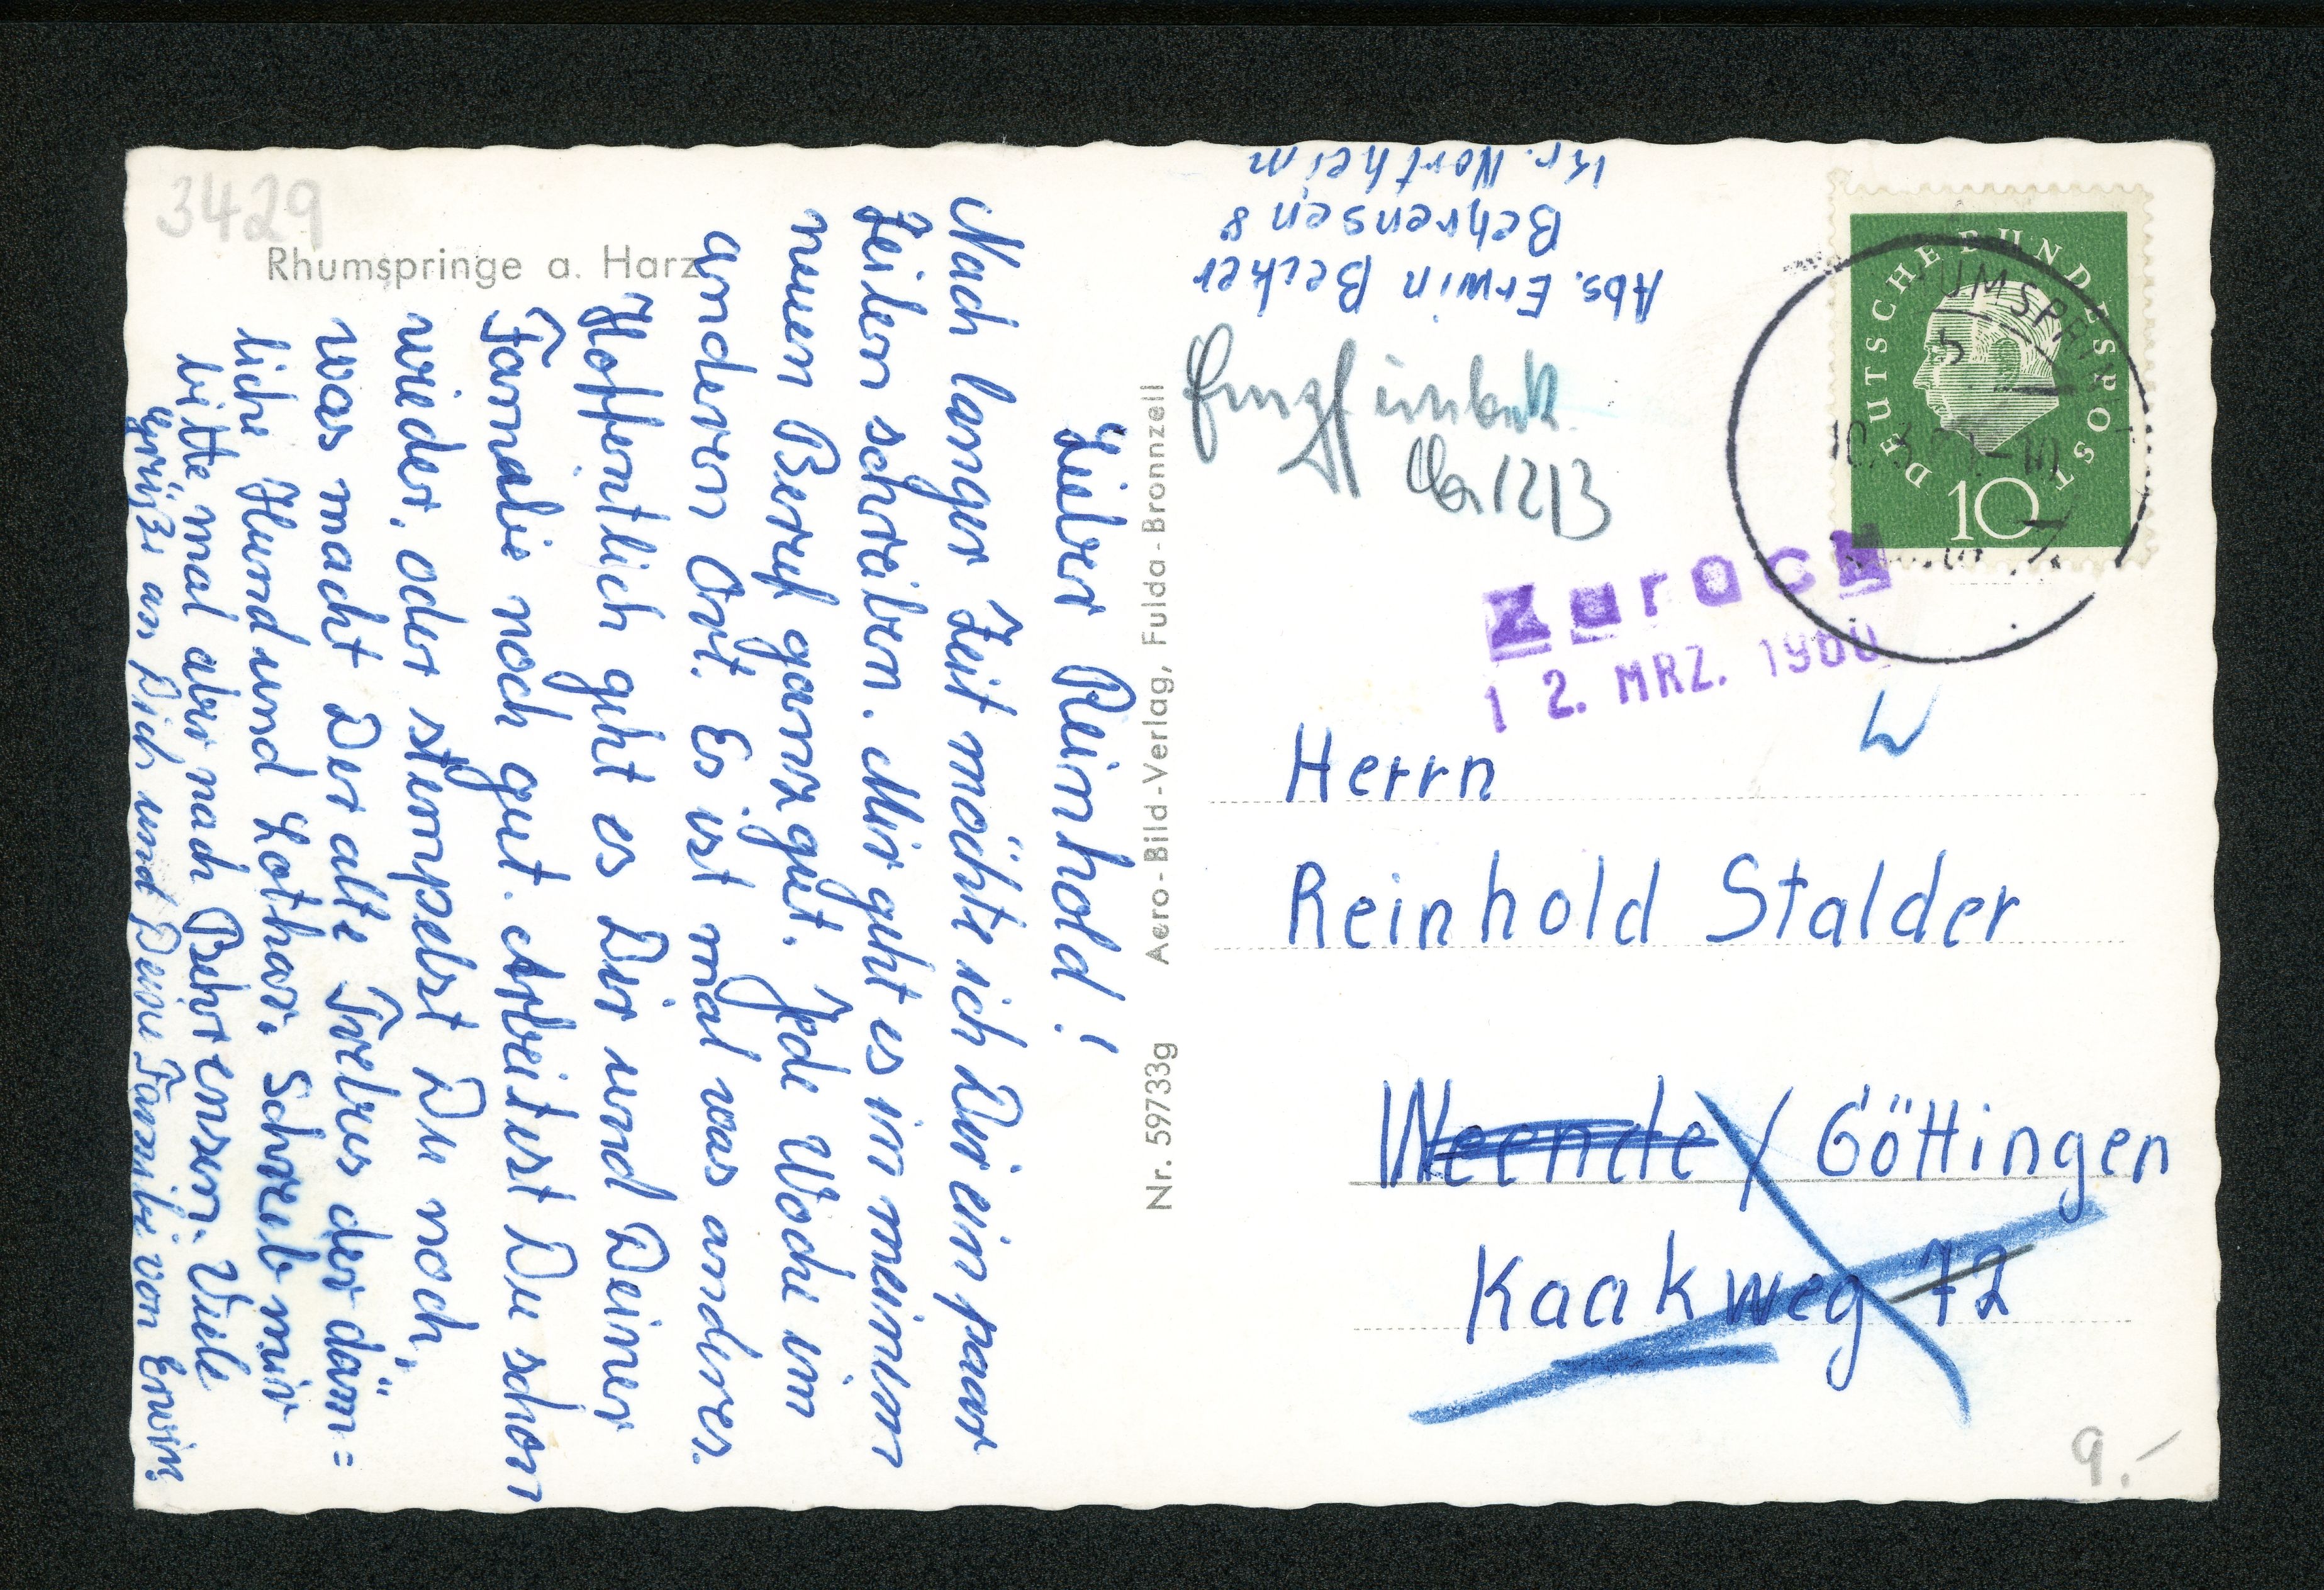 3429
Rhumspringe a. Harz
Lieber Reinhold!
Nach langer Zeit möchte ich Dir ein paar
Zeilen schreiben. Mir geht es in meinem
neuen Beruf ganz gut. Jede Woche im
anderen Ort. Es ist mal was andres.
Hoffentlich geht es Dir und Deiner
Familie noch gut. Arbeitest Du schon
wieder, oder stempelst Du noch,
was macht Der alte der däm=
liche Hund und Lothar. Schreib mir
bitte mal aber nach Behrensen. Viele
Grüße an Dich und Deine Familie von Erwin
Aero-Bild-Verlag, Fulda-Bronnzell
Nr. 59733g
Abs. Erwin Becker
Behrensen 8
Kr. Northeim
12/3
DEUTSCHE BUNDESPOST
10
UMSPRIN
Zurück
12. MRZ. 1960
Herrn
Reinhold Stalder
Weende / Göttingen
Kaakweg 72
9.-